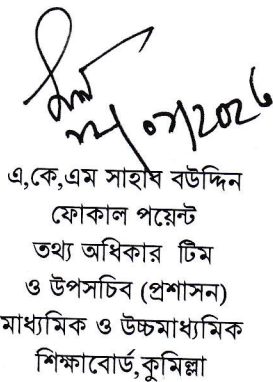 এ,কে,এম সাহাব বউদ্দিন
ফোকাল পয়েন্ট
তথ্য অধিকার টিম
ও উপসচিব (প্রশাসন)
মাধ্যমিক ও উচ্চমাধ্যমিক
শিক্ষাবোর্ড,কুমিল্লা